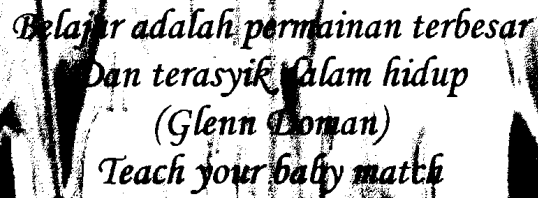 Belajar adalah permainan terbesar
Dan terasyik dalam hidup
(Glenn Doman)
Teach your baby match